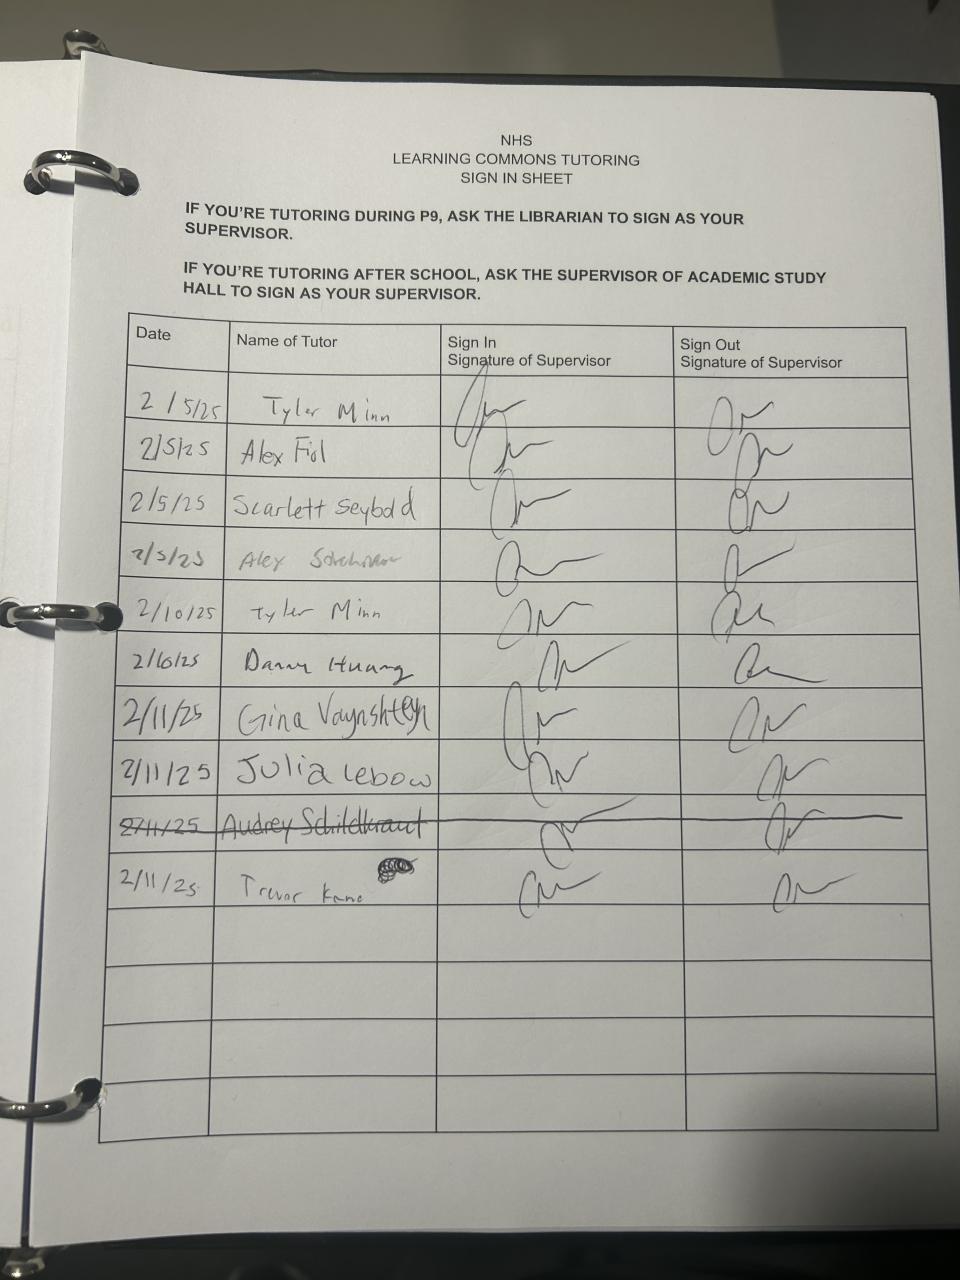 NHS
LEARNING COMMONS TUTORING
SIGN IN SHEET
IF YOU'RE TUTORING DURING P9, ASK THE LIBRARIAN TO SIGN AS YOUR
SUPERVISOR.
IF YOU'RE TUTORING AFTER SCHOOL, ASK THE SUPERVISOR OF ACADEMIC STUDY
HALL TO SIGN AS YOUR SUPERVISOR.
Date Name of Tutor Sign In Sign Out
Signature of Supervisor Signature of Supervisor
2/5/25 Tyler Minn
2/5/25 Alex Fiol
2/5/25 Scarlett Seybold
2/5/25 Alex
2/10/25 Tyler Minn
2/10/25 Danny Huang
2/11/25 Gina Vaynshteyn
2/11/25 Julia Lebow
2/11/25 Audrey Schildkraut
2/11/25 Trevor Kane